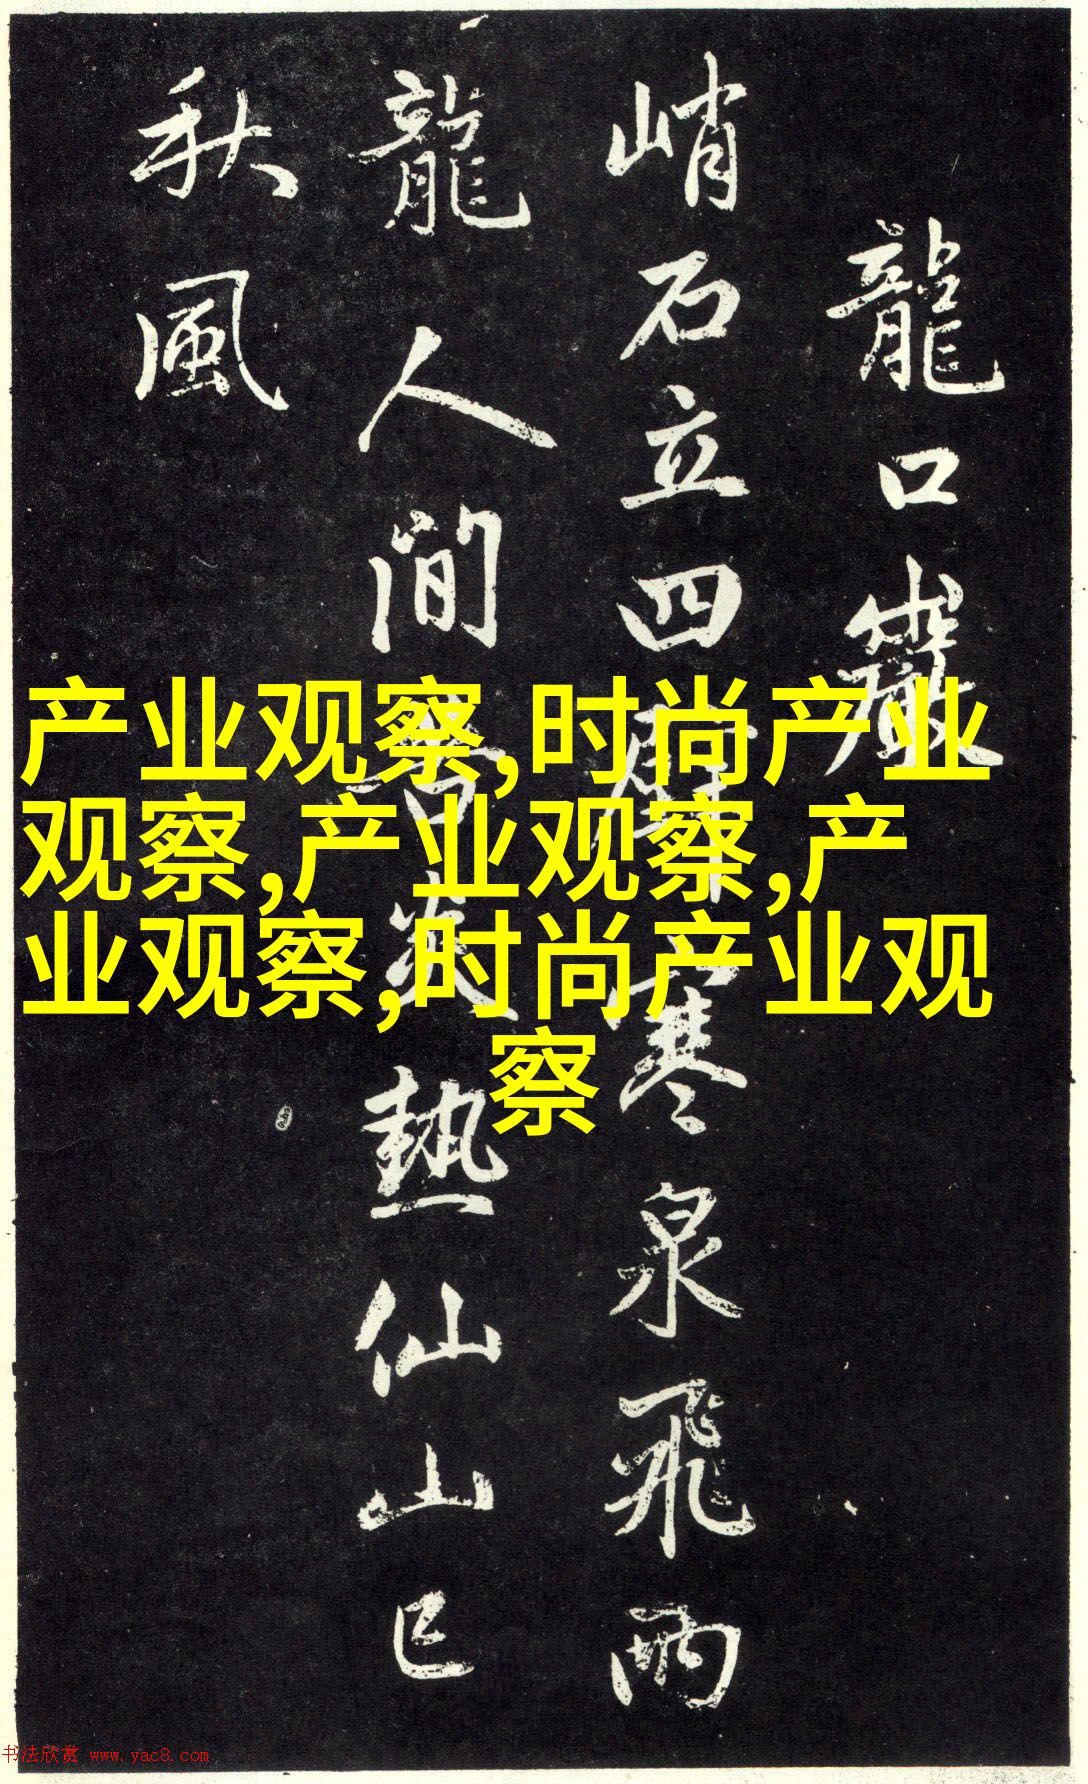 龍口巖
峭石立四壁寒泉飛兩
龍人間苦炎熱仙山已
秋風
产业观察,时尚产业
观察,产业观察,产
业观察,时尚产业观
察
书法欣赏 www.yac8.com